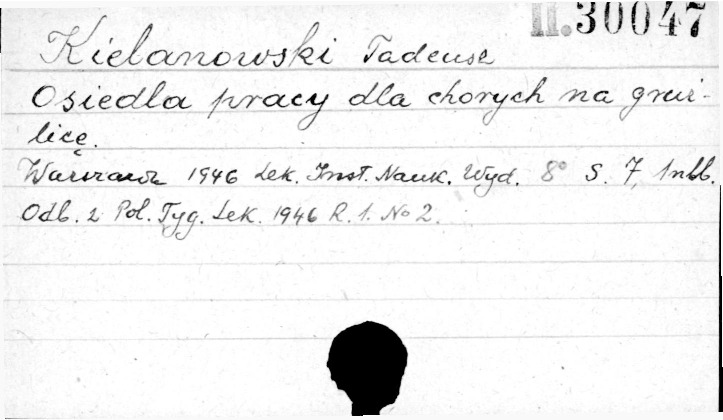 II.30047
Kielanowski Tadeusz
Osiedla pracy dla chorych na gruź-
licę.
Warszawa 1946 Lek. Inst. Nauk. Wyd. 8° S. 7, 1nlb.
Odb. z Pol. Tyg. Lek. 1946 R. 1. No 2.